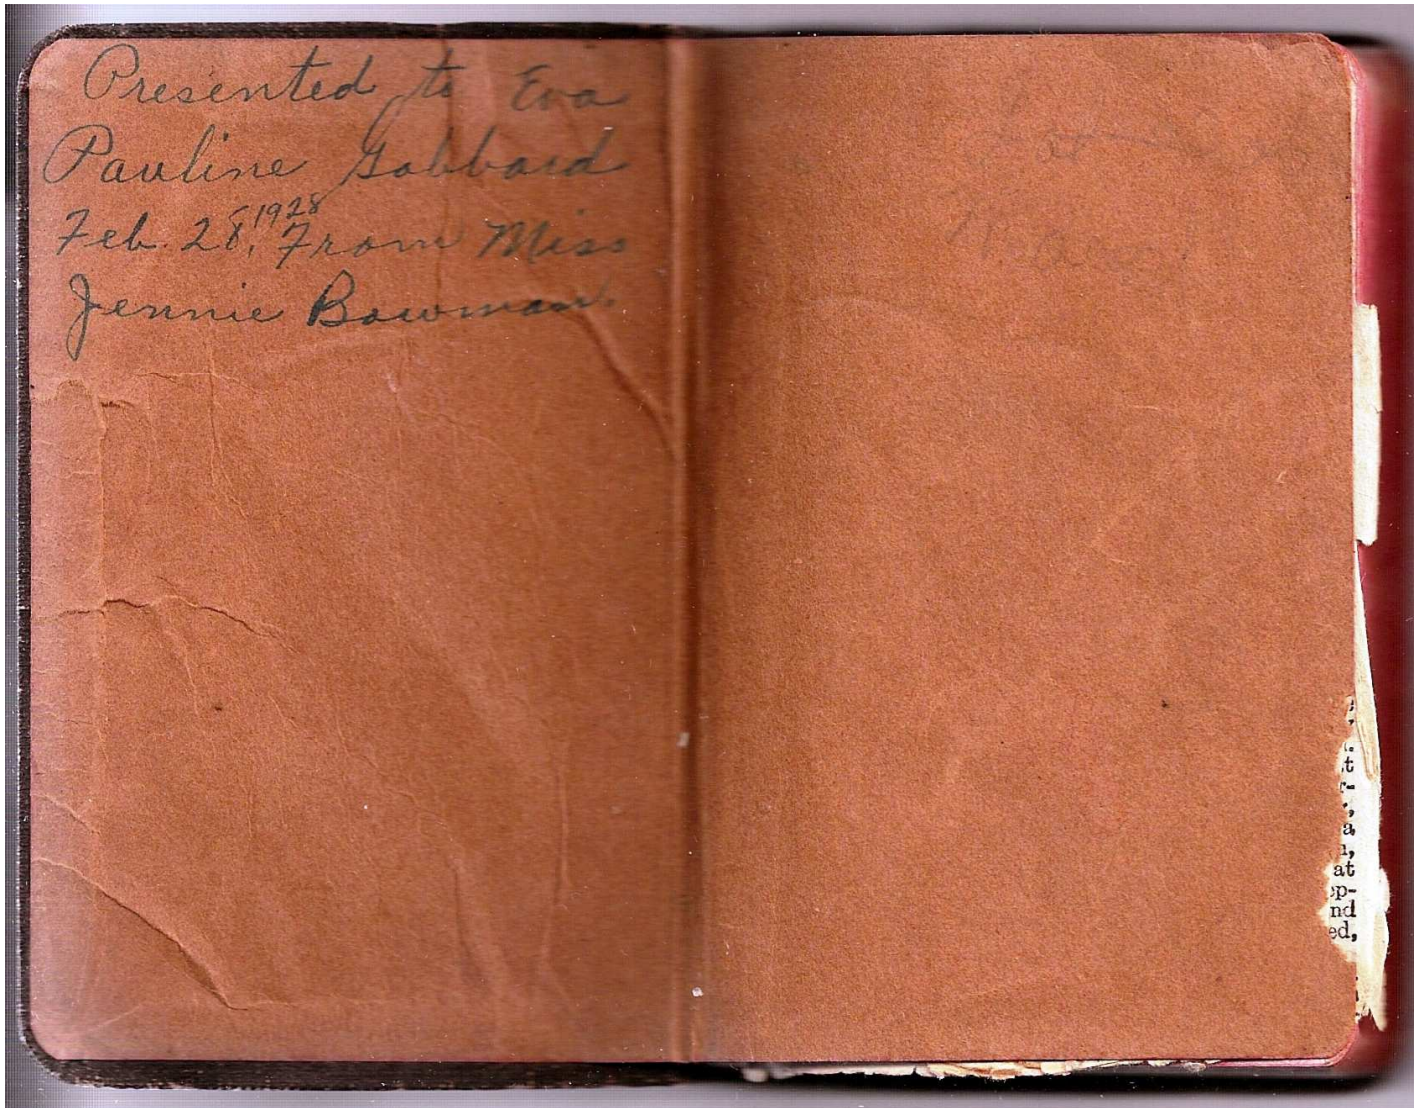 Presented to Eva
Pauline Gabbard
Feb. 28, 1928 From Miss
Jennie Bowman
t
a
n,
at
op-
nd
ed,